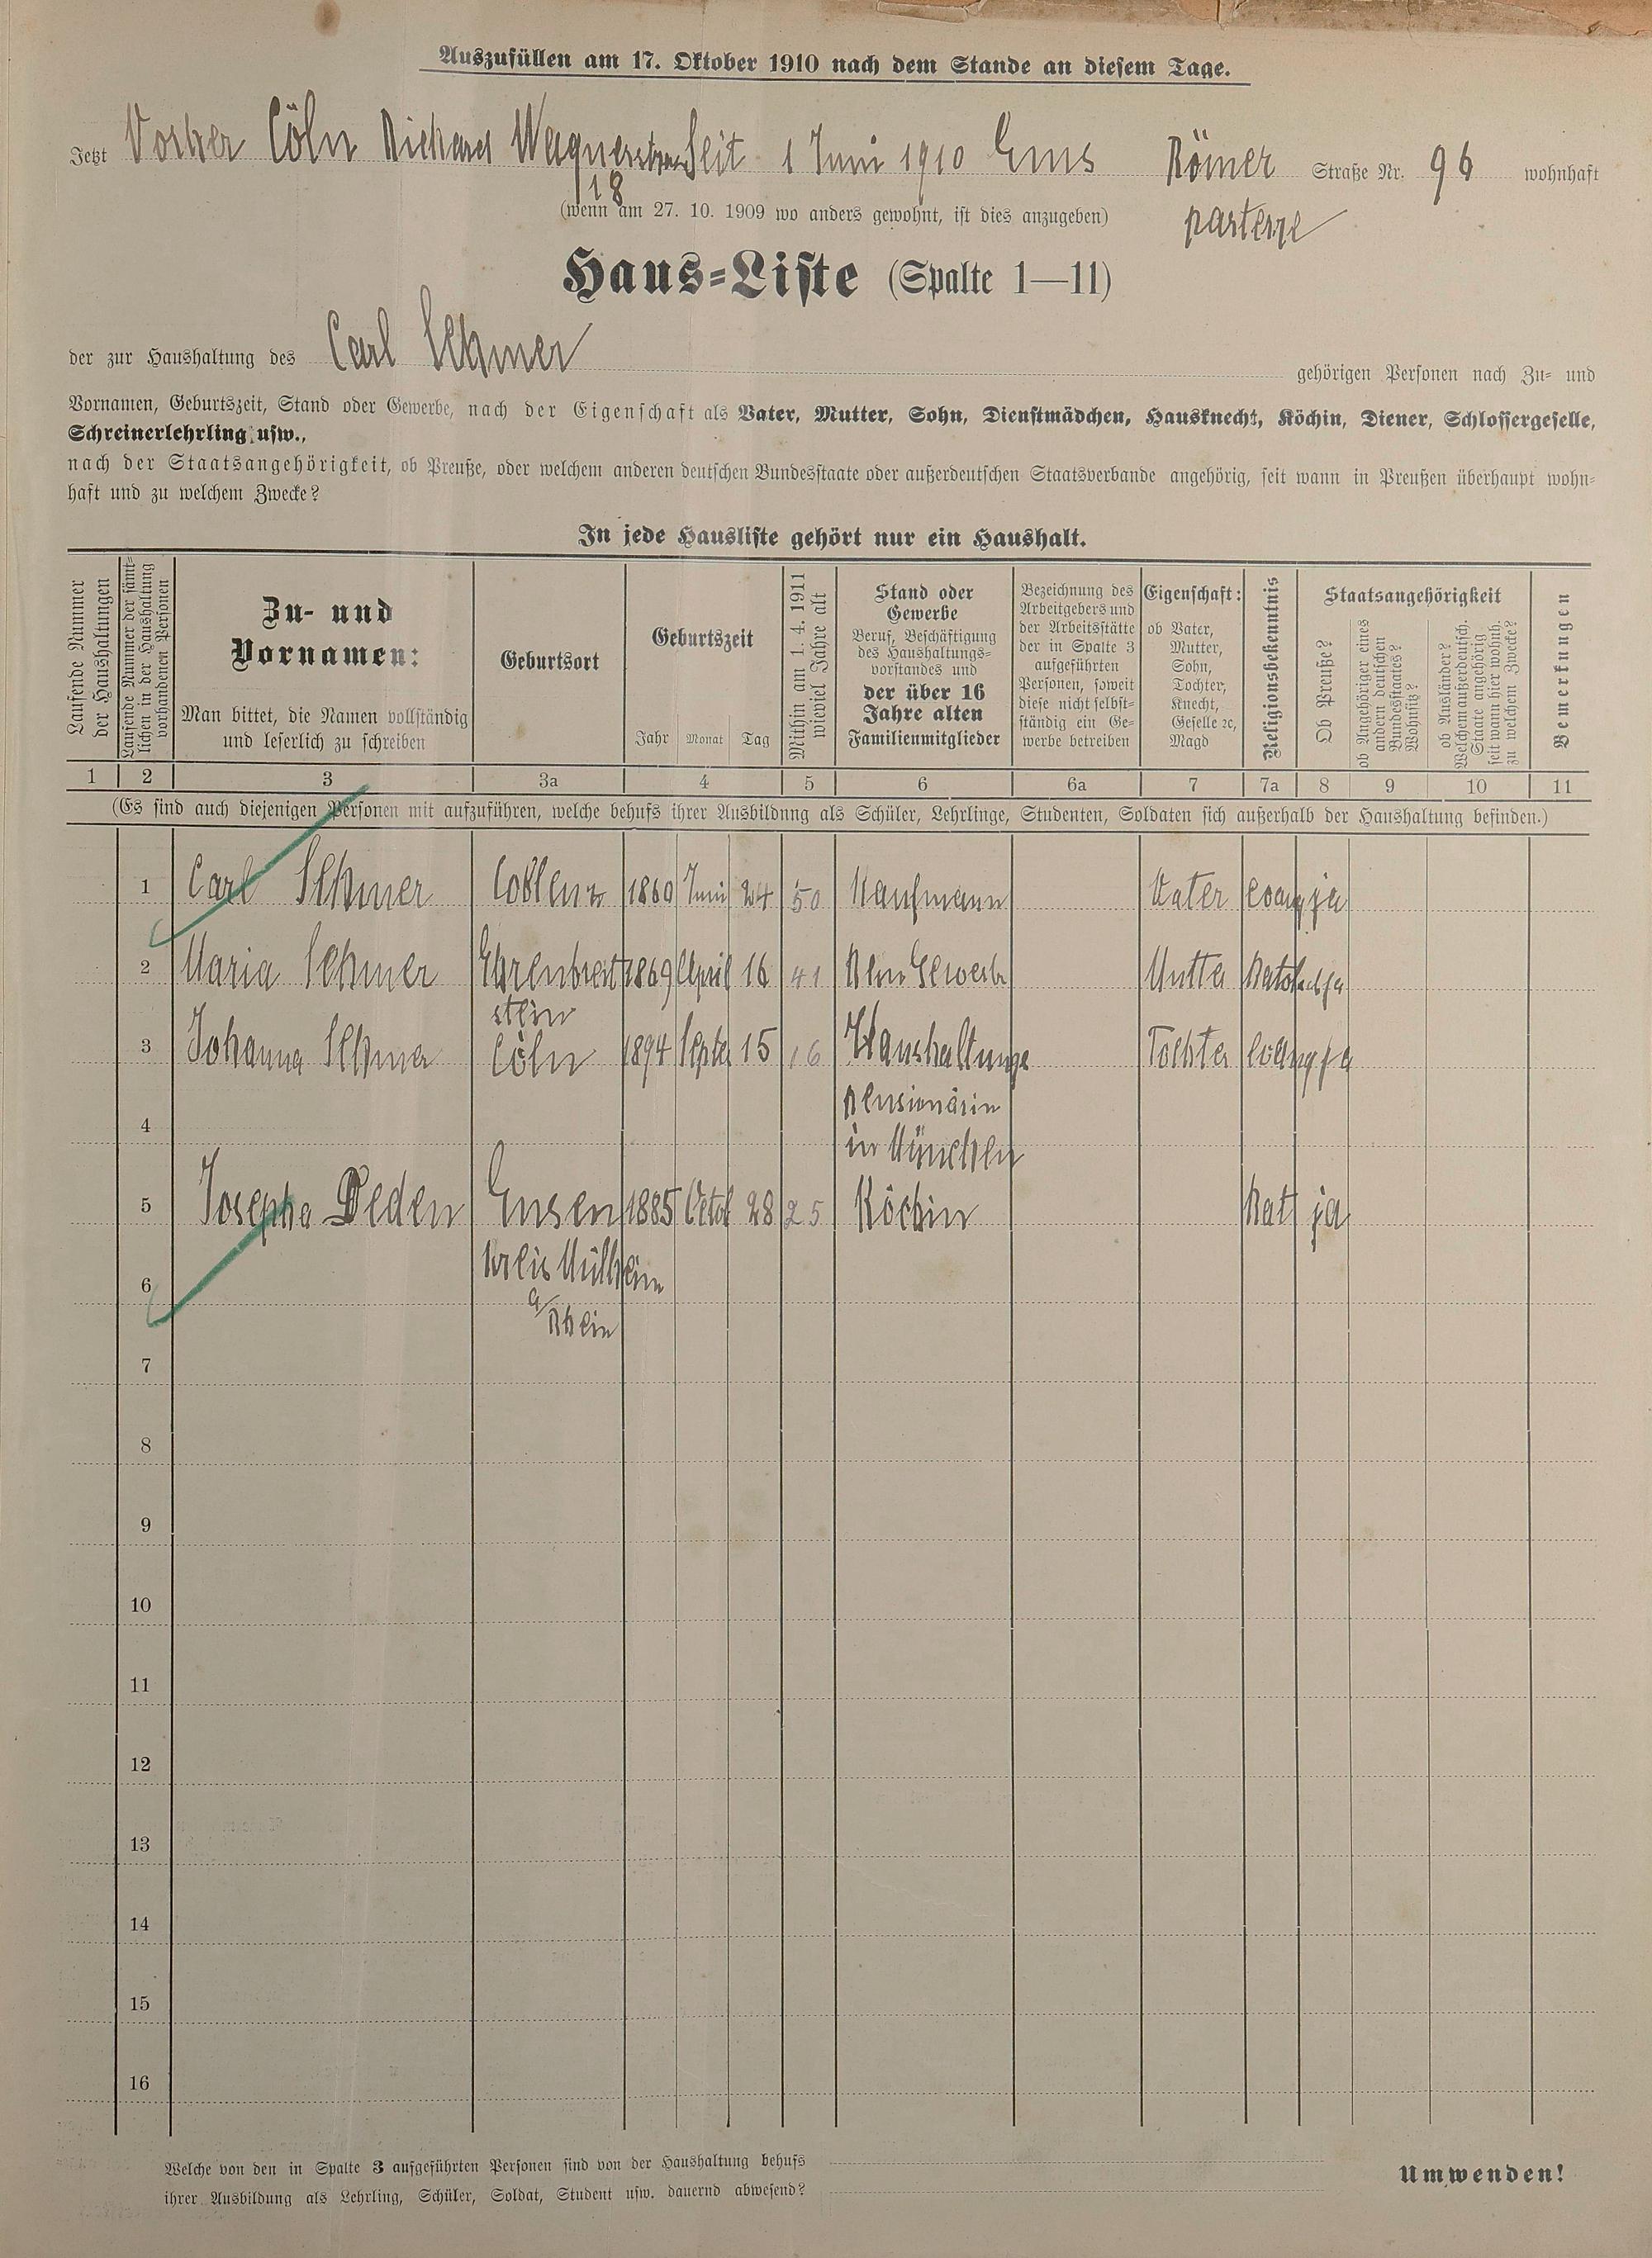 Auszufüllen am 17. Oktober 1910 nach dem Stande an diesem Tage.
Jetzt Vorher Cöln Richard Wagnerstrasse Seit 1 Juni 1910 Ems Römer Straße Nr. 96 wohnhaft
18
(wenn am 27. 10. 1909 wo anders gewohnt, ist dies anzugeben) parterre
Haus-Liste (Spalte 1—11)
der zur Haushaltung des Carl Sehmer gehörigen Personen nach Zu- und
Vornamen, Geburtszeit, Stand oder Gewerbe, nach der Eigenschaft als Vater, Mutter, Sohn, Dienstmädchen, Hausknecht, Köchin, Diener, Schlossergeselle,
Schreinerlehrling usw.,
nach der Staatsangehörigkeit, ob Preuße, oder welchem anderen deutschen Bundesstaate oder außerdeutschen Staatsverbande angehörig, seit wann in Preußen überhaupt wohn-
haft und zu welchem Zwecke?
In jede Hausliste gehört nur ein Haushalt.
Laufende Nummer
der Haushaltungen
Laufende Nummer der sämt-
lichen in der Haushaltung
vorhandenen Personen
Zu- und
Vornamen:
Man bittet, die Namen vollständig
und leserlich zu schreiben
Geburtsort
Geburtszeit
Jahr Monat Tag
Mithin am 1. 4. 1911
wieviel Jahre alt
Stand oder
Gewerbe
Beruf, Beschäftigung
des Haushaltungs-
vorstandes und
der über 16
Jahre alten
Familienmitglieder
Bezeichnung des
Arbeitgebers und
der Arbeitsstätte
der in Spalte 3
aufgeführten
Personen, soweit
diese nicht selbst-
ständig ein Ge-
werbe betreiben
Eigenschaft:
ob Vater,
Mutter,
Sohn,
Tochter,
Knecht,
Geselle ec,
Magd
Religionsbekenntnis
Staatsangehörigkeit
Ob Preuße?
ob Angehöriger eines
andern deutschen
Bundesstaates?
Wohnsitz?
ob Ausländer?
Welchem außerdeutsch.
Staate angehörig
seit wann hier wohnh.
zu welchem Zwecke?
Bemerkungen
1 2 3 3a 4 5 6 6a 7 7a 8 9 10 11
(Es sind auch diejenigen Personen mit aufzuführen, welche behufs ihrer Ausbildung als Schüler, Lehrlinge, Studenten, Soldaten sich außerhalb der Haushaltung befinden.)
1 Carl Sehmer Coblenz 1860 Juni 24 50 Kaufmann Vater evang ja
2 Maria Sehmer Ehrenbreit 1869 April 16 41 Gewerbe Mutter ja
stein
3 Johanna Sehmer Cöln 1894 Septer 15 16 Haushaltungs Tochter evang ja
pensionärin
4 in München
5 Josepha Deden Ensen 1885 Octob 28 25 Köchin Kat ja
Kreis Mülheim
6 a/Rhein
7
8
9
10
11
12
13
14
15
16
Welche von den in Spalte 3 aufgeführten Personen sind von der Haushaltung behufs
ihrer Ausbildung als Lehrling, Schüler, Soldat, Student usw. dauernd abwesend?
Umwenden!